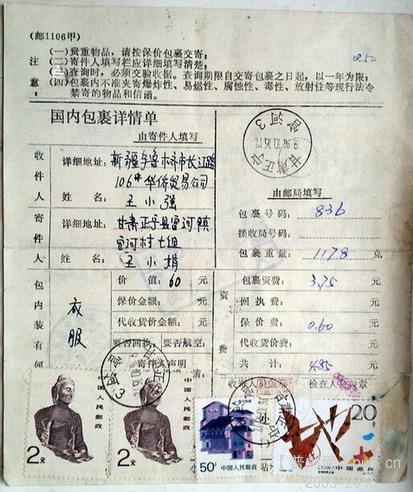 (邮1106甲)
注意
(一)贵重物品，请按保价包裹交寄；
(二)寄件人填写栏应详细填写清楚；
(三)查询时，必须交验收据。查询期限自交寄包裹之日起，以一年为限；
(四)包裹内不准夹寄爆炸性、易燃性、腐蚀性、毒性、放射性等现行法令
禁寄的物品和信函。
0.50
国内包裹详情单
由寄件人填写
收件人
详细地址：新疆乌鲁木齐市长江路
106# 华侨贸易公司
姓名：王小强
寄件人
详细地址：甘肃正宁县宫河镇
宫河村七组
姓名：王小娟
由邮局填写
包裹号码：836
接收局号码：
包裹重量：1178 克
包内装有何
衣服
价值：60 元
保价金额： 元
代收货价金额： 元
要否回执 要否航空
寄件人声明
资费
包裹资费：3.75 元
回执费： 元
保价费：0.60 元
代收货价费： 元
共计：4.85 元
甘肃正宁
宫河3
中国人民邮政
2元
中国人民邮政
2元
50分
中国人民邮政
20